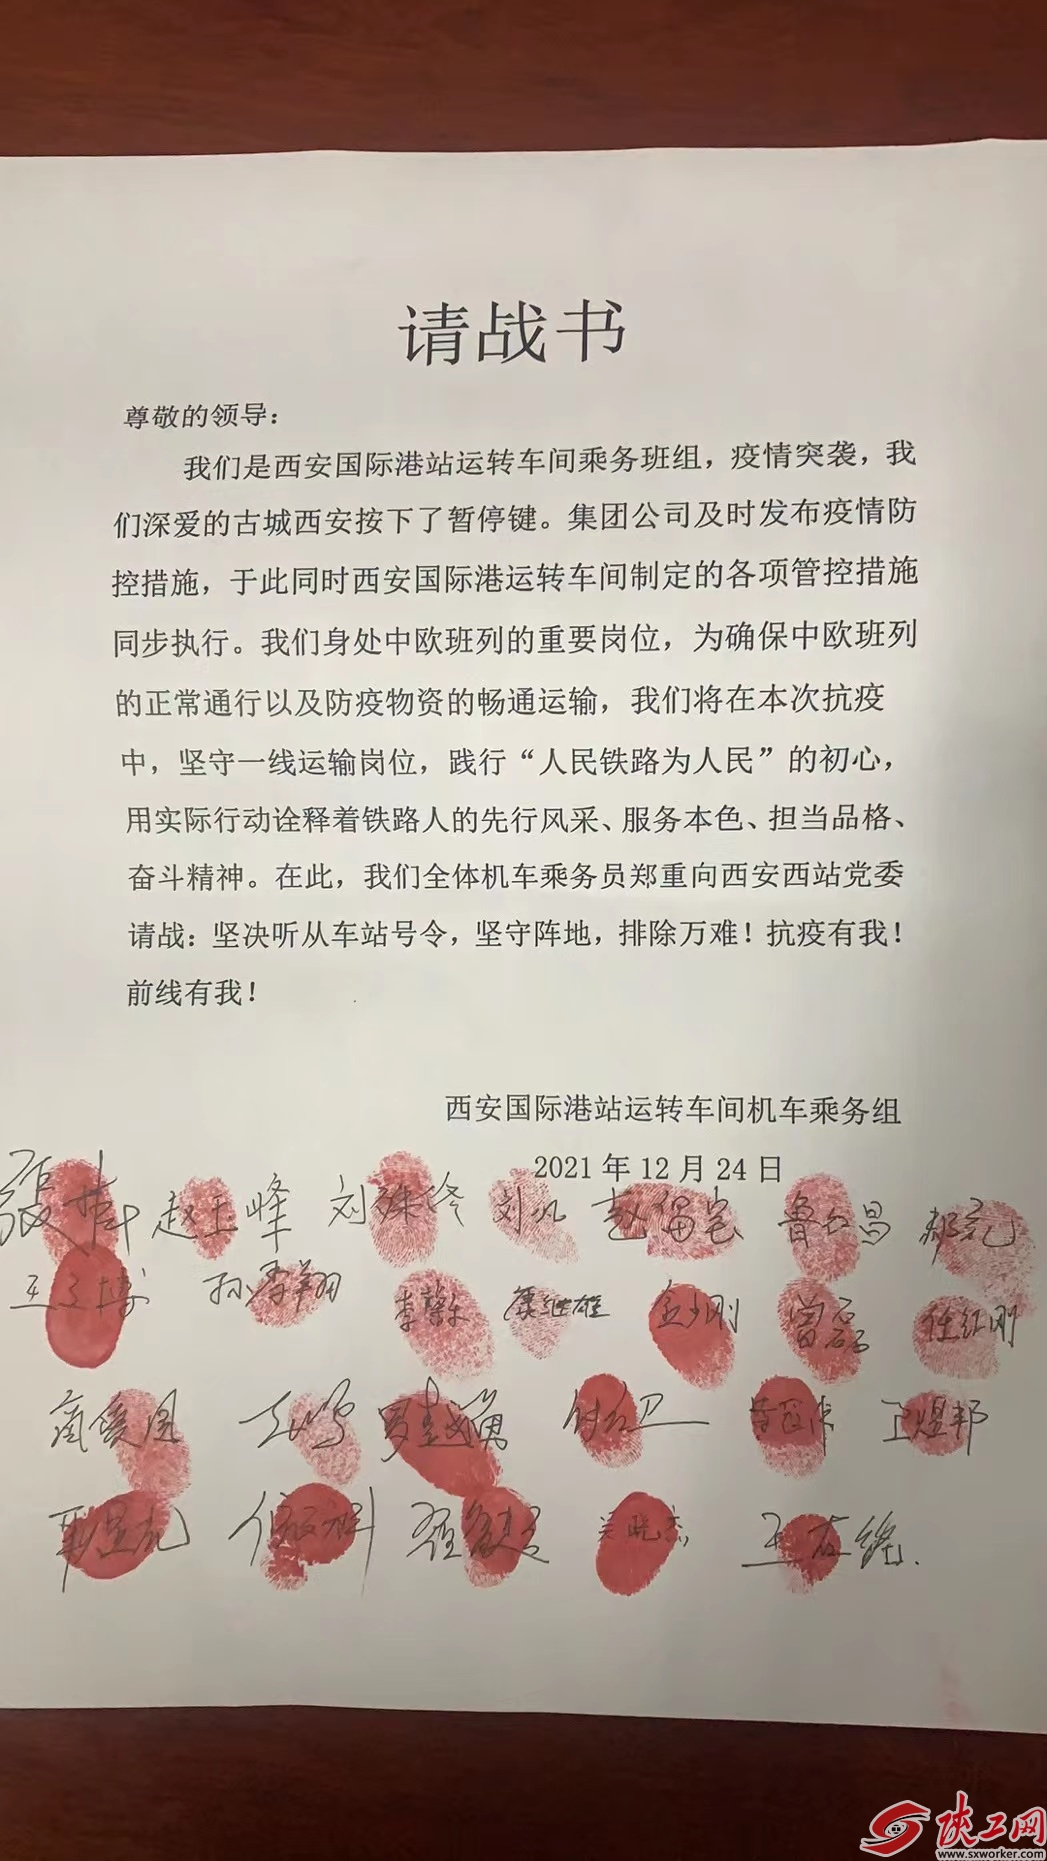 请战书
尊敬的领导：
我们是西安国际港站运转车间乘务班组，疫情突袭，我
们深爱的古城西安按下了暂停键。集团公司及时发布疫情防
控措施，于此同时西安国际港运转车间制定的各项管控措施
同步执行。我们身处中欧班列的重要岗位，为确保中欧班列
的正常通行以及防疫物资的畅通运输，我们将在本次抗疫
中，坚守一线运输岗位，践行“人民铁路为人民”的初心，
用实际行动诠释着铁路人的先行风采、服务本色、担当品格、
奋斗精神。在此，我们全体机车乘务员郑重向西安西站党委
请战：坚决听从车站号令，坚守阵地，排除万难！抗疫有我！
前线有我！
西安国际港站运转车间机车乘务组
2021 年 12 月 24 日
赵玉峰
金少刚 曾磊 任红刚
王煜邦
吴晓杰
陕工网
www.sxworker.com